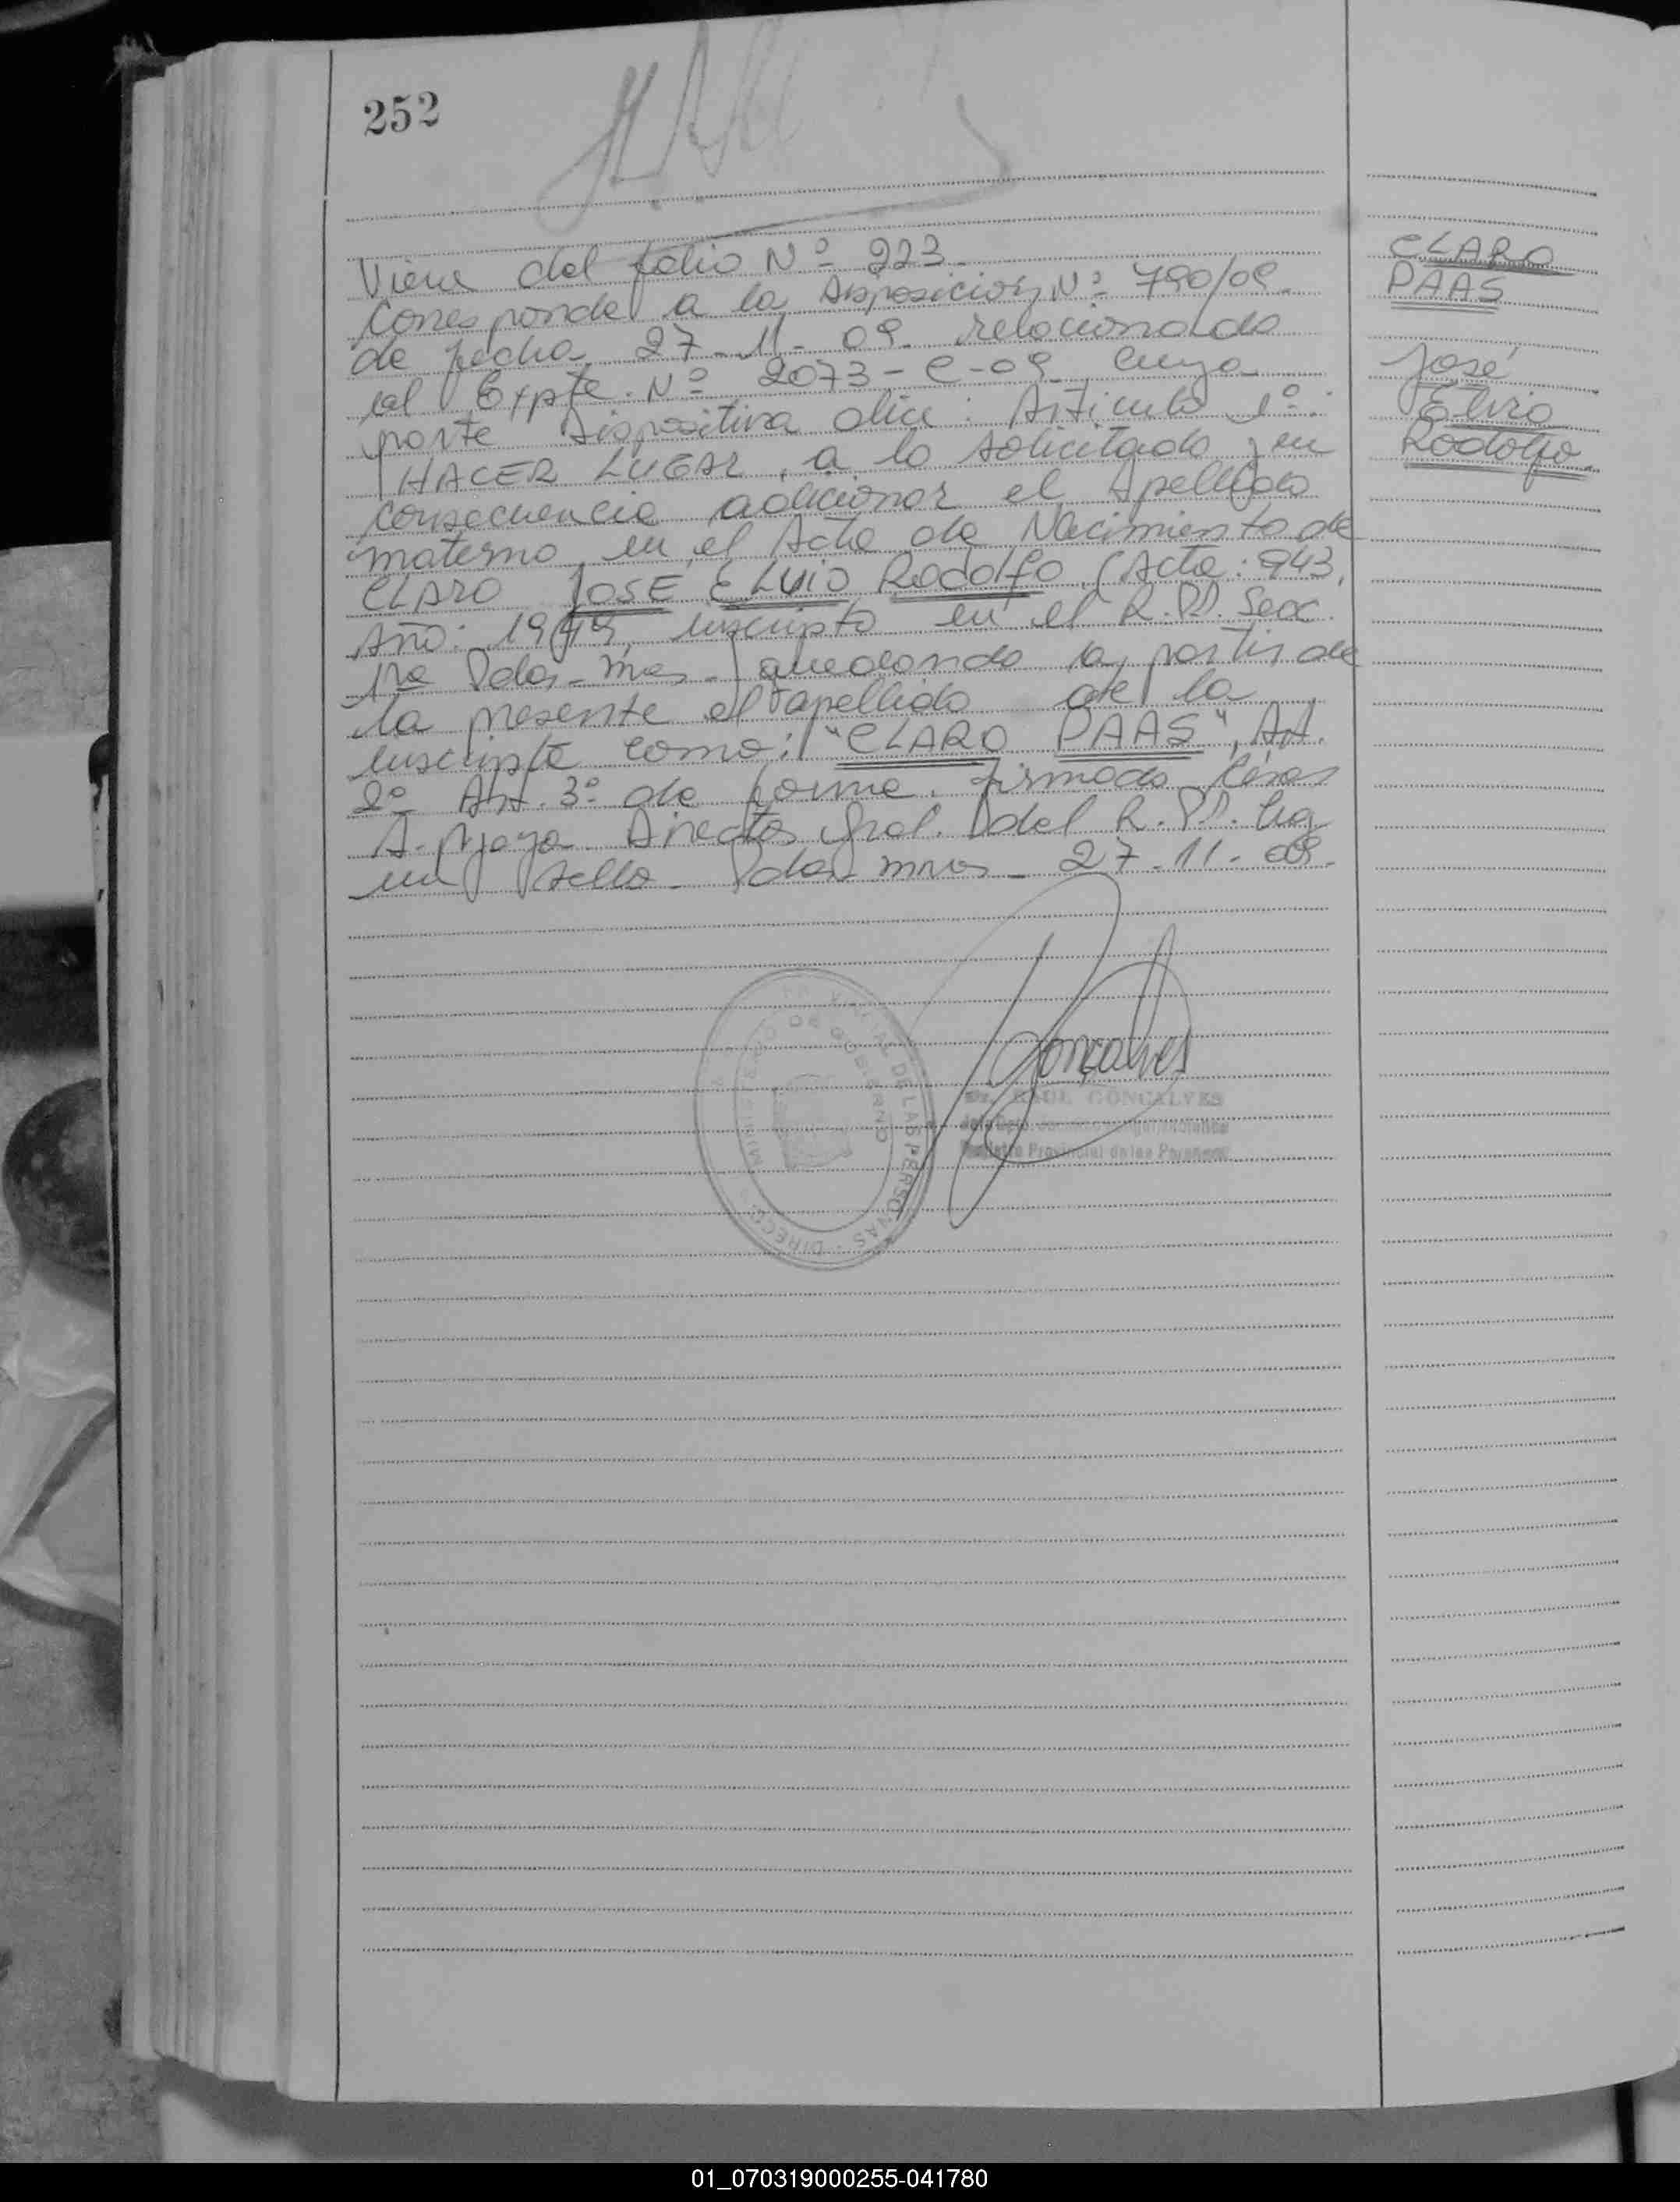 252
Viene del folio Nº 223.
Corresponde a la Disposición Nº 790/09.
de fecha 27-11-09 relacionado
al Expte. Nº 2073-C-09 cuya
parte Dispositiva dice: Artículo 1º:
HACER LUGAR, a lo solicitado, en
consecuencia adicionar el Apellido
materno en el Acta de Nacimiento de
CLARO JOSE ELVIO Rodolfo (Acta: 943,
Año: 1949, inscripto en el R.PP. Secc.
1ra Pdas. Mnes. quedando a partir de
la presente el apellido de la
inscripta como: "CLARO PAAS", Art.
2º Art. 3º de forma. firmado
Director Gral. del R.PP. hay
un sello. Pdas. mnes. 27-11-09.
CLARO
PAAS
José
Elvio
Rodolfo
Goncalves
RAUL GONCALVES
Registro Provincial de las Personas
DE LAS PERSONAS - DIRECC
MINISTERIO DE GOBIERNO
01_070319000255-041780